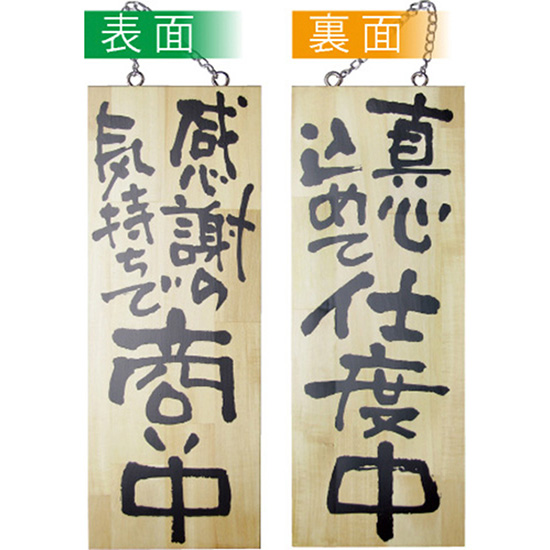 表面
感謝の
気持ちで
商い中
裏面
真心
込めて
仕度中